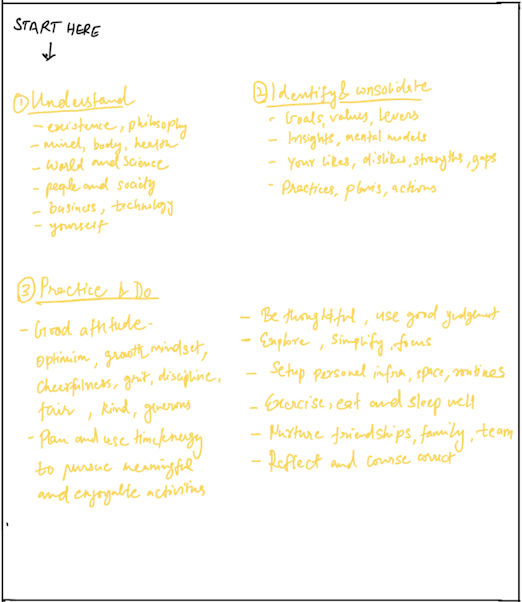 START HERE
① Understand
- existence, philosophy
- mind, body, health
- World and science
- people and society
- business, technology
- yourself
② Identify & consolidate
- Goals, values, levers
- Insights, mental models
- Your likes, dislikes, strengths, gaps
- Practices, plans, actions
③ Practice & Do
- Good attitude -
Optimism, growth mindset,
Cheerfulness, grit, discipline,
fair, kind, generous
- Plan and use time/energy
to pursue meaningful
and enjoyable activities
- Be thoughtful, use good judgement
- Explore, Simplify, focus
- Setup personal infra, space, routines
- Exercise, eat and sleep well
- Nurture friendships, family, team
- Reflect and course correct